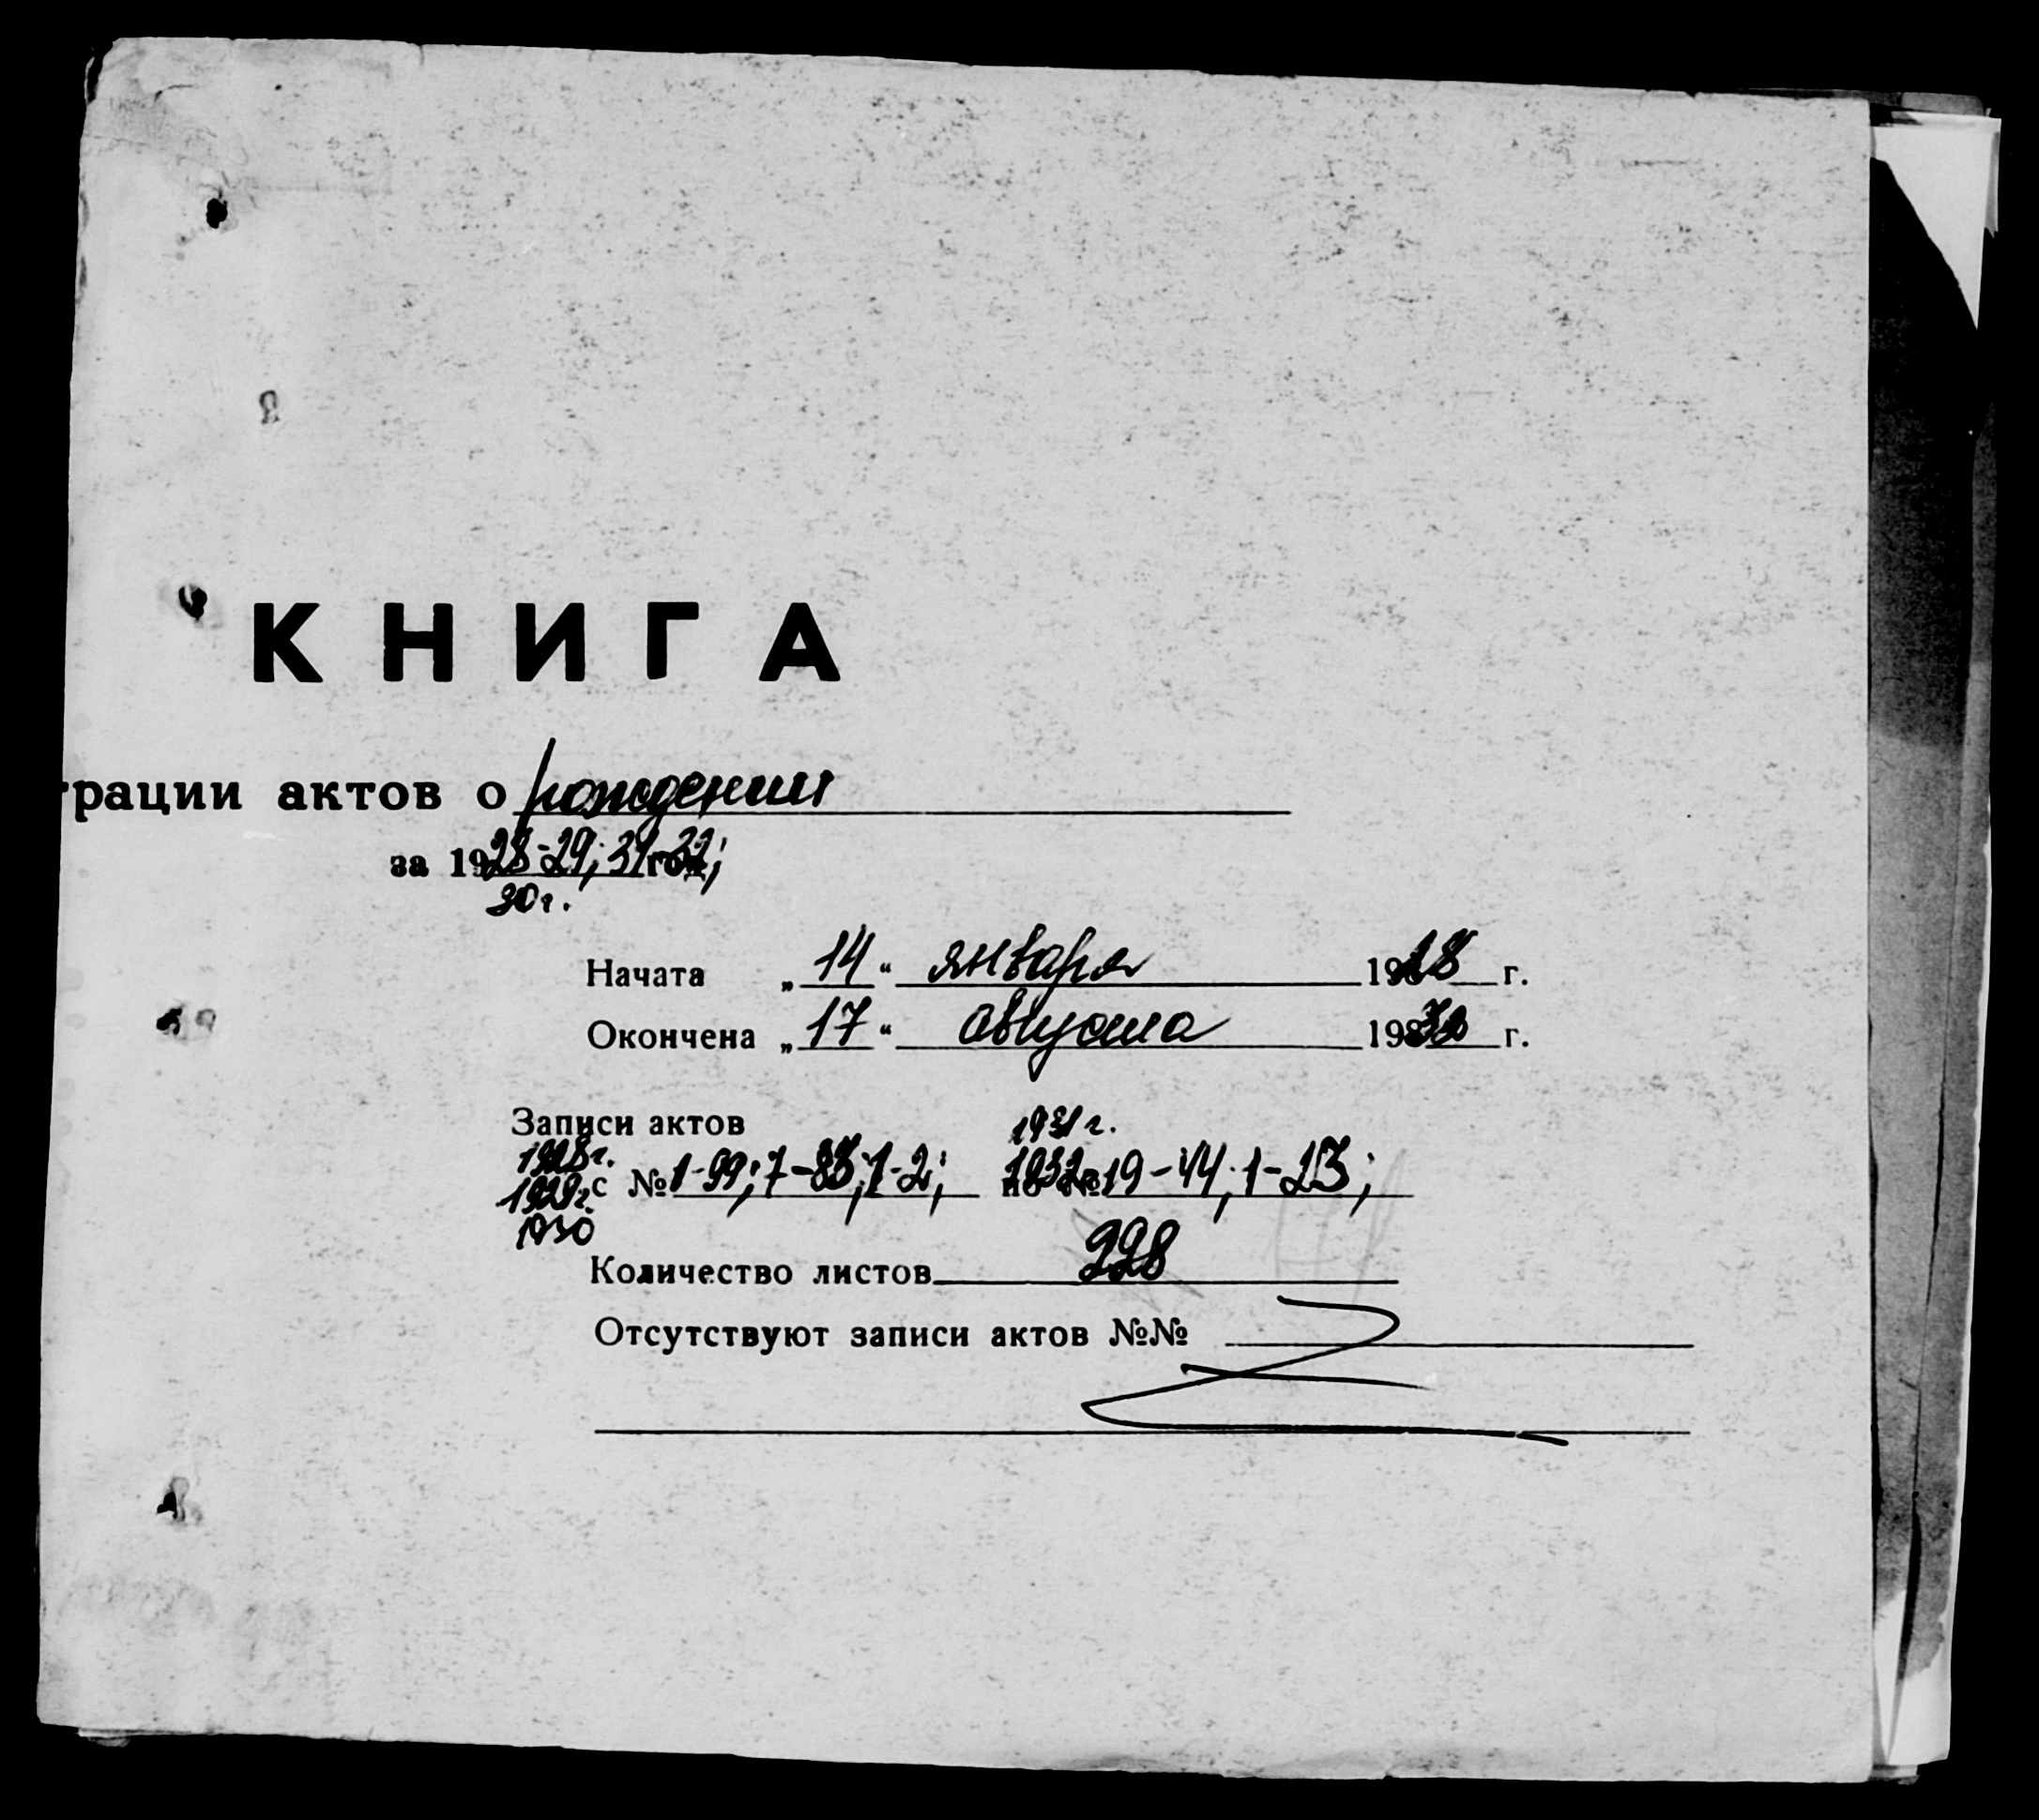 КНИГА
трации актов о рождении
за 1928-29; 31-32; год
30 г.
Начата „14“ января 1928 г.
Окончена „17“ августа 1930 г.
Записи актов 1931 г.
1928 г.
1929 г. с № 1-99; 7-88; 1-2; 1932 по № 19-44; 1-23;
1930
Количество листов 228
Отсутствуют записи актов №№